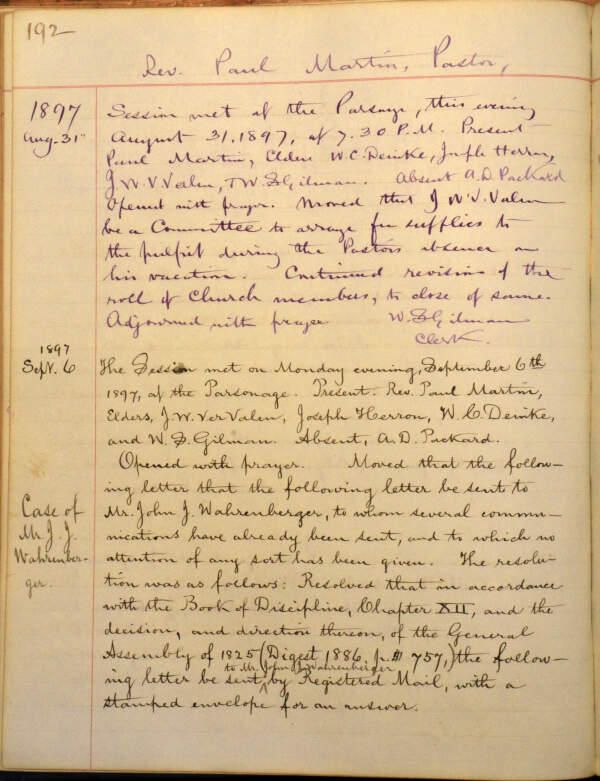 192
Rev. Paul Martin, Pastor,
1897
Aug. 31st
Session met at the Parsonage, this evening
August 31, 1897, at 7.30 P.M. Present
Paul Martin, Elders W. C. Deinke, Joseph Herron,
J. W. V. Valen, W. S. Gilman. Absent A. D. Packard
Opened with prayer. Moved that J W V. Valen
be a Committee to arrange for supplies to
the pulpit during the Pastors absence on
his vacation. Continued revision of the
roll of Church members, to close of same.
Adjourned with prayer W. S. Gilman
Clerk.
1897
Sept. 6
The Session met on Monday evening, September 6th
1897, at the Parsonage. Present. Rev. Paul Martin,
Elders, J. W. Ver Valen, Joseph Herron, W. C. Deinke,
and W. S. Gilman. Absent, A. D. Packard.
Opened with prayer. Moved that the follow-
ing letter that the following letter be sent to
Case of
Mr. J. J.
Wahrenber-
ger.
Mr. John J. Wahrenberger, to whom several commu-
nications have already been sent, and to which no
attention of any sort has been given. The resolu-
tion was as follows: Resolved that in accordance
with the Book of Discipline, Chapter XII, and the
decision, and direction thereon, of the General
Assembly of 1825 (Digest 1886, p. 757,) the follow-
to Mr. John J. Wahrenberger
ing letter be sent, by Registered Mail, with a
stamped envelope for an answer.